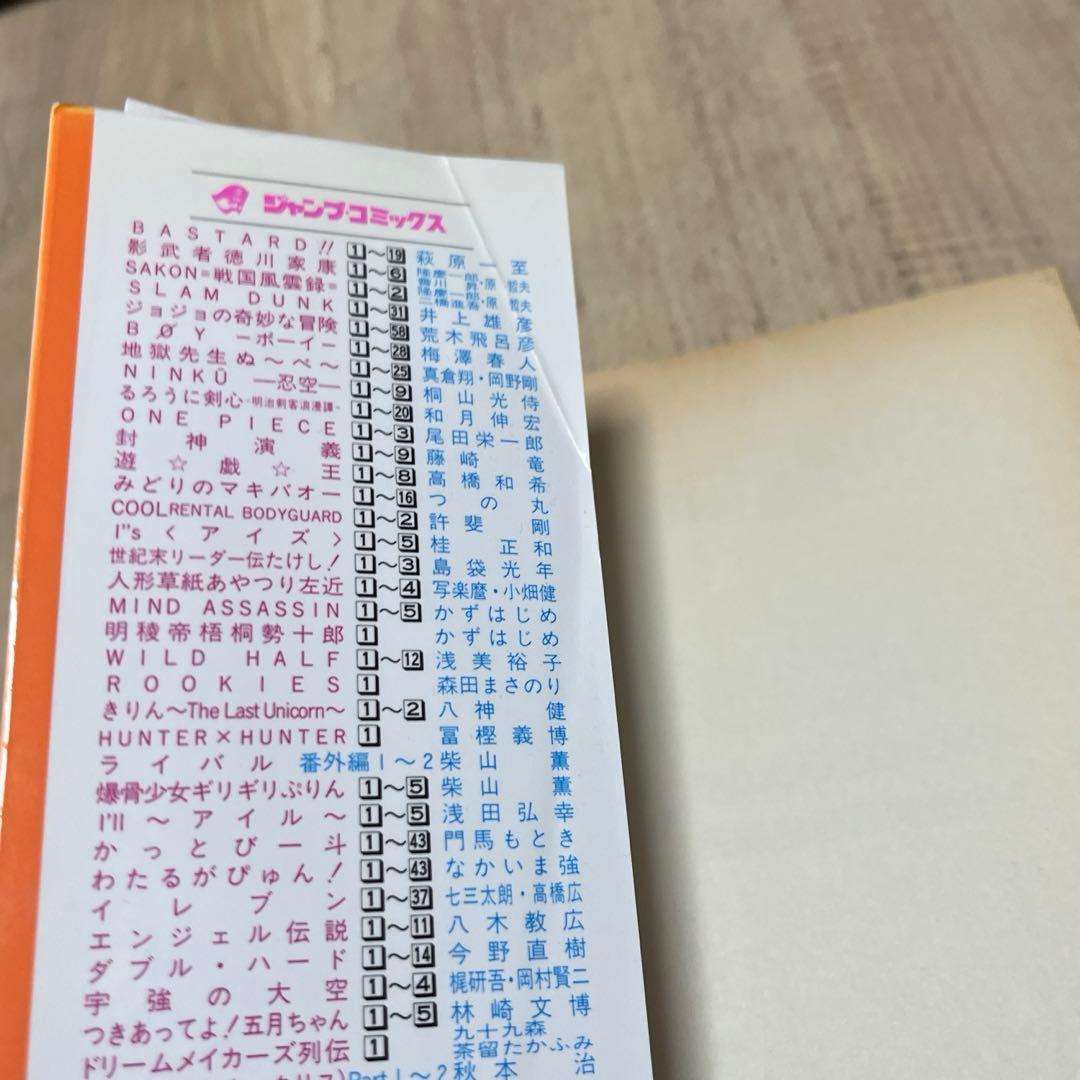 ジャンプ・コミックス
BASTARD!! 1〜19 萩原一至
影武者徳川家康 1〜6 隆慶一郎・會川昇・原哲夫
SAKON=戦国風雲録= 1〜2 隆慶一郎・二橋進吾・原哲夫
SLAM DUNK 1〜31 井上雄彦
ジョジョの奇妙な冒険 1〜58 荒木飛呂彦
BØY −ボーイ− 1〜28 梅澤春人
地獄先生ぬ〜べ〜 1〜25 真倉翔・岡野剛
NINKŪ —忍空— 1〜9 桐山光侍
るろうに剣心-明治剣客浪漫譚- 1〜20 和月伸宏
ONE PIECE 1〜3 尾田栄一郎
封神演義 1〜9 藤崎竜
遊☆戯☆王 1〜8 高橋和希
みどりのマキバオー 1〜16 つの丸
COOL RENTAL BODYGUARD 1〜2 許斐剛
I"s〈アイズ〉 1〜5 桂正和
世紀末リーダー伝たけし! 1〜3 島袋光年
人形草紙あやつり左近 1〜4 写楽麿・小畑健
MIND ASSASSIN 1〜5 かずはじめ
明稜帝梧桐勢十郎 1 かずはじめ
WILD HALF 1〜12 浅美裕子
ROOKIES 1 森田まさのり
きりん〜The Last Unicorn〜 1〜2 八神健
HUNTER×HUNTER 1 冨樫義博
ライバル 番外編1〜2 柴山薫
爆骨少女ギリギリぷりん 1〜5 柴山薫
I'll 〜アイル〜 1〜5 浅田弘幸
かっとび一斗 1〜43 門馬もとき
わたるがぴゅん! 1〜43 なかいま強
イレブン 1〜37 七三太朗・高橋広
エンジェル伝説 1〜11 八木教広
ダブル・ハード 1〜14 今野直樹
宇強の大空 1〜4 梶研吾・岡村賢二
つきあってよ!五月ちゃん 1〜5 林崎文博
ドリームメイカーズ列伝 1 九十九森 茶留たかふみ
Part 1〜2 秋本治